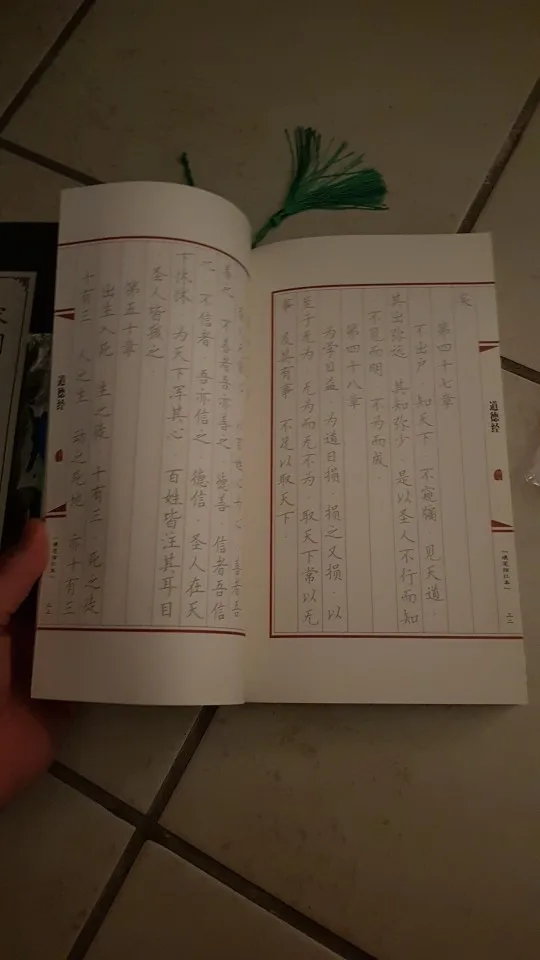 道德经
矣
第四十七章
不出户·知天下·不窥牖·见天道·
其出弥远·其知弥少·是以圣人不行而知·
不见而明·不为而成·
第四十八章
为学日益·为道日损·损之又损·以
至于无为·无为而无不为·取天下常以无
事·及其有事·不足以取天下·
善者吾
善之·不善者吾亦善之·德善·信者吾信
之·不信者·吾亦信之·德信·圣人在天
下怵怵·为天下浑其心·百姓皆注其耳目·
圣人皆孩之·
第五十章
出生入死·生之徒·十有三·死之徒·
十有三·人之生·动之死地·亦十有三
道德经